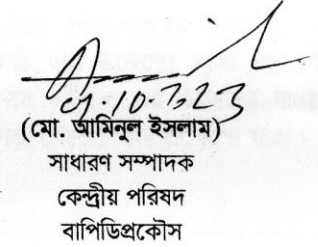 (মো. আমিনুল ইসলাম)
সাধারণ সম্পাদক
কেন্দ্রীয় পরিষদ
বাপিডিপ্রকৌস